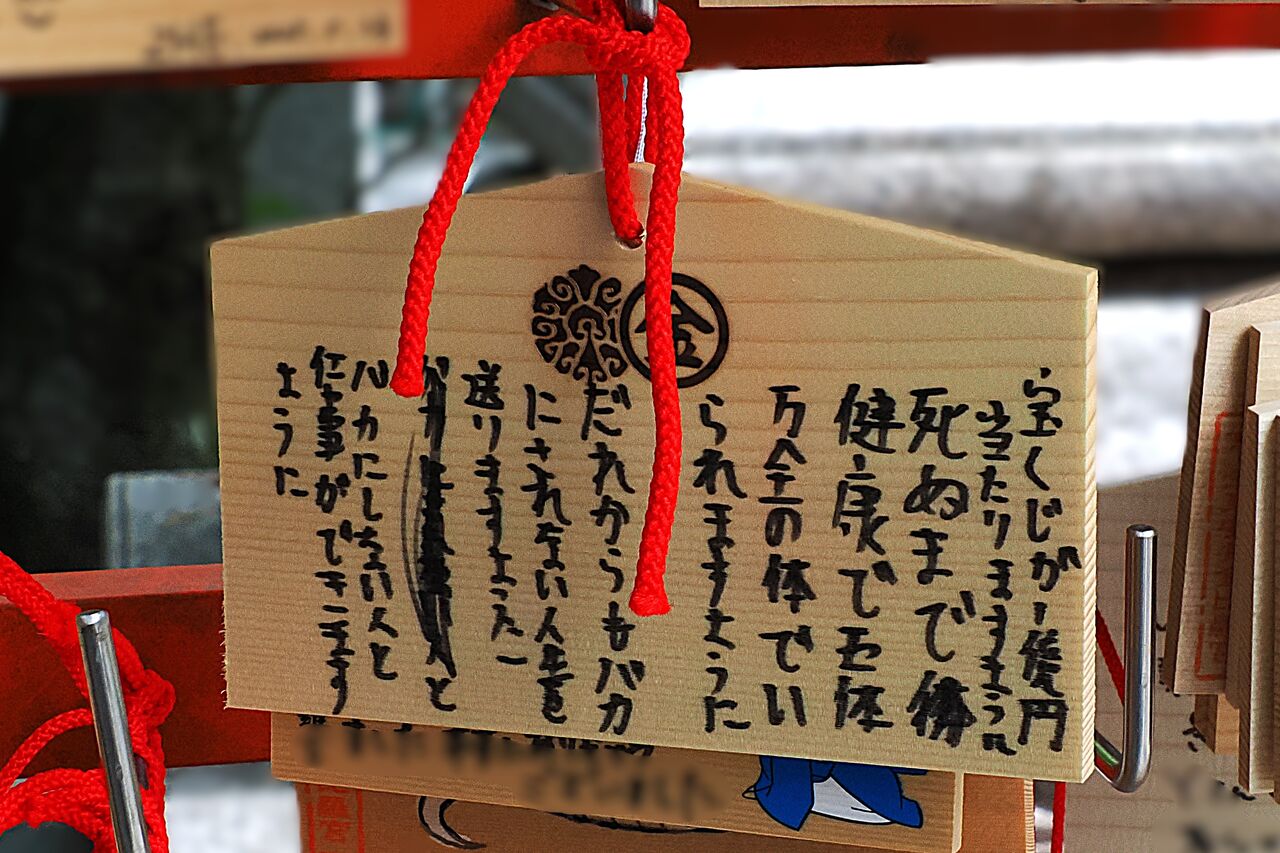 金
宝くじが1億円
当たりますように
死ぬまで
健康で五体
万全の体でい
られますように
だれからもバカ
にされない人生を
送りますように
と
バカにしない人と
仕事ができます
ように